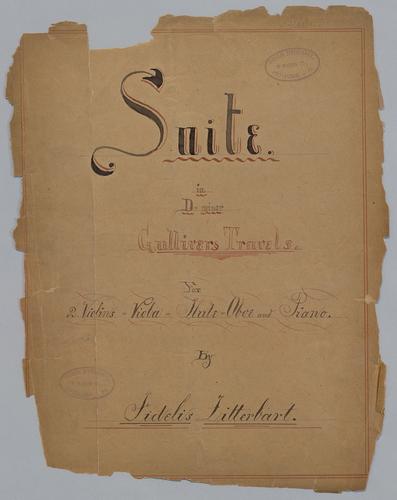 Suite.
in
D- minor
Gullivers Travels.
For
2 Violins - Viola - Flute - Oboe and Piano.
By
Fidelis Zitterbart.